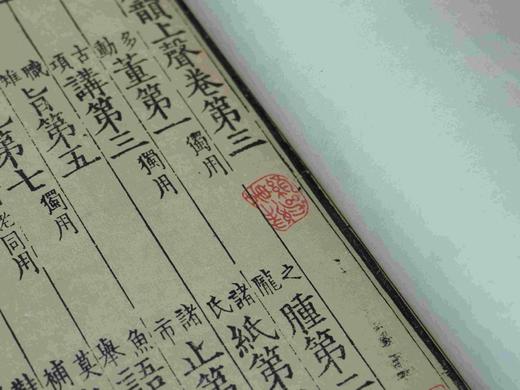 韻上聲卷第三
多動董第一獨用
之隴腫第二
古項講第三獨用
諸氏紙第
職雉旨第五
諸市止第
第七獨用
魚語
同用
莫補